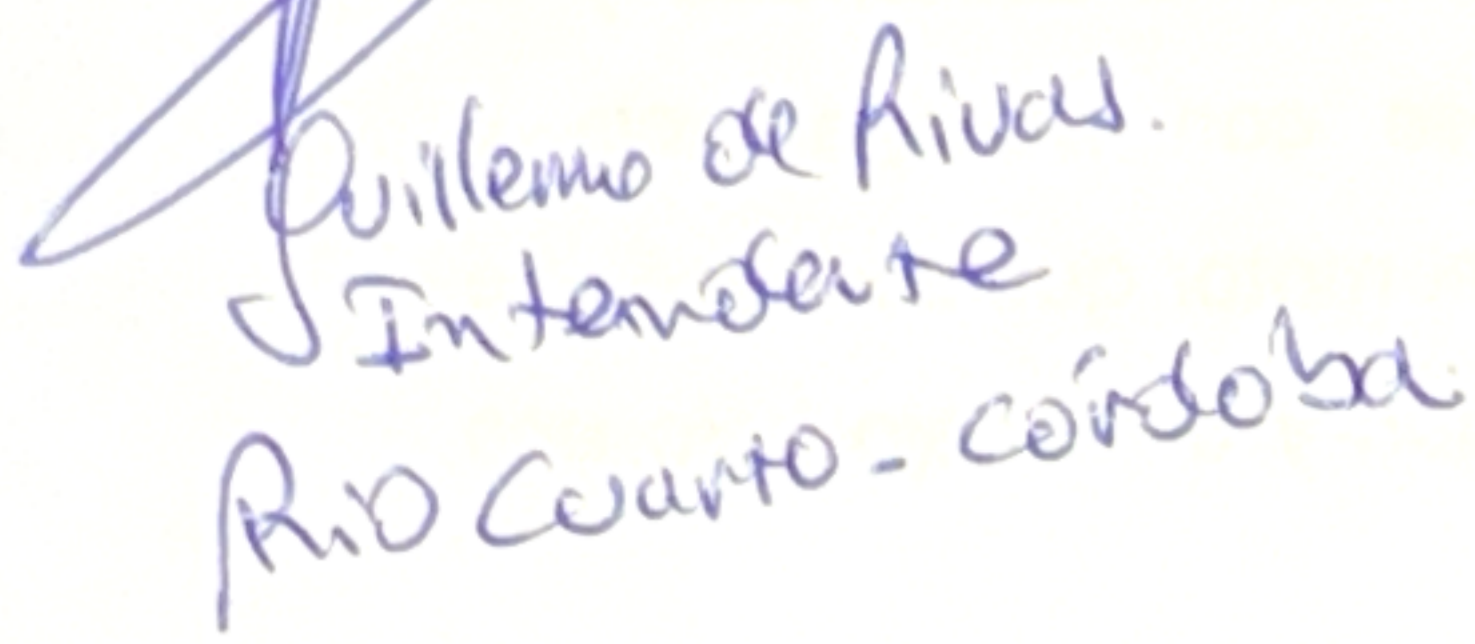 Guillermo de Rivas.
Intendente
Río Cuarto - Córdoba